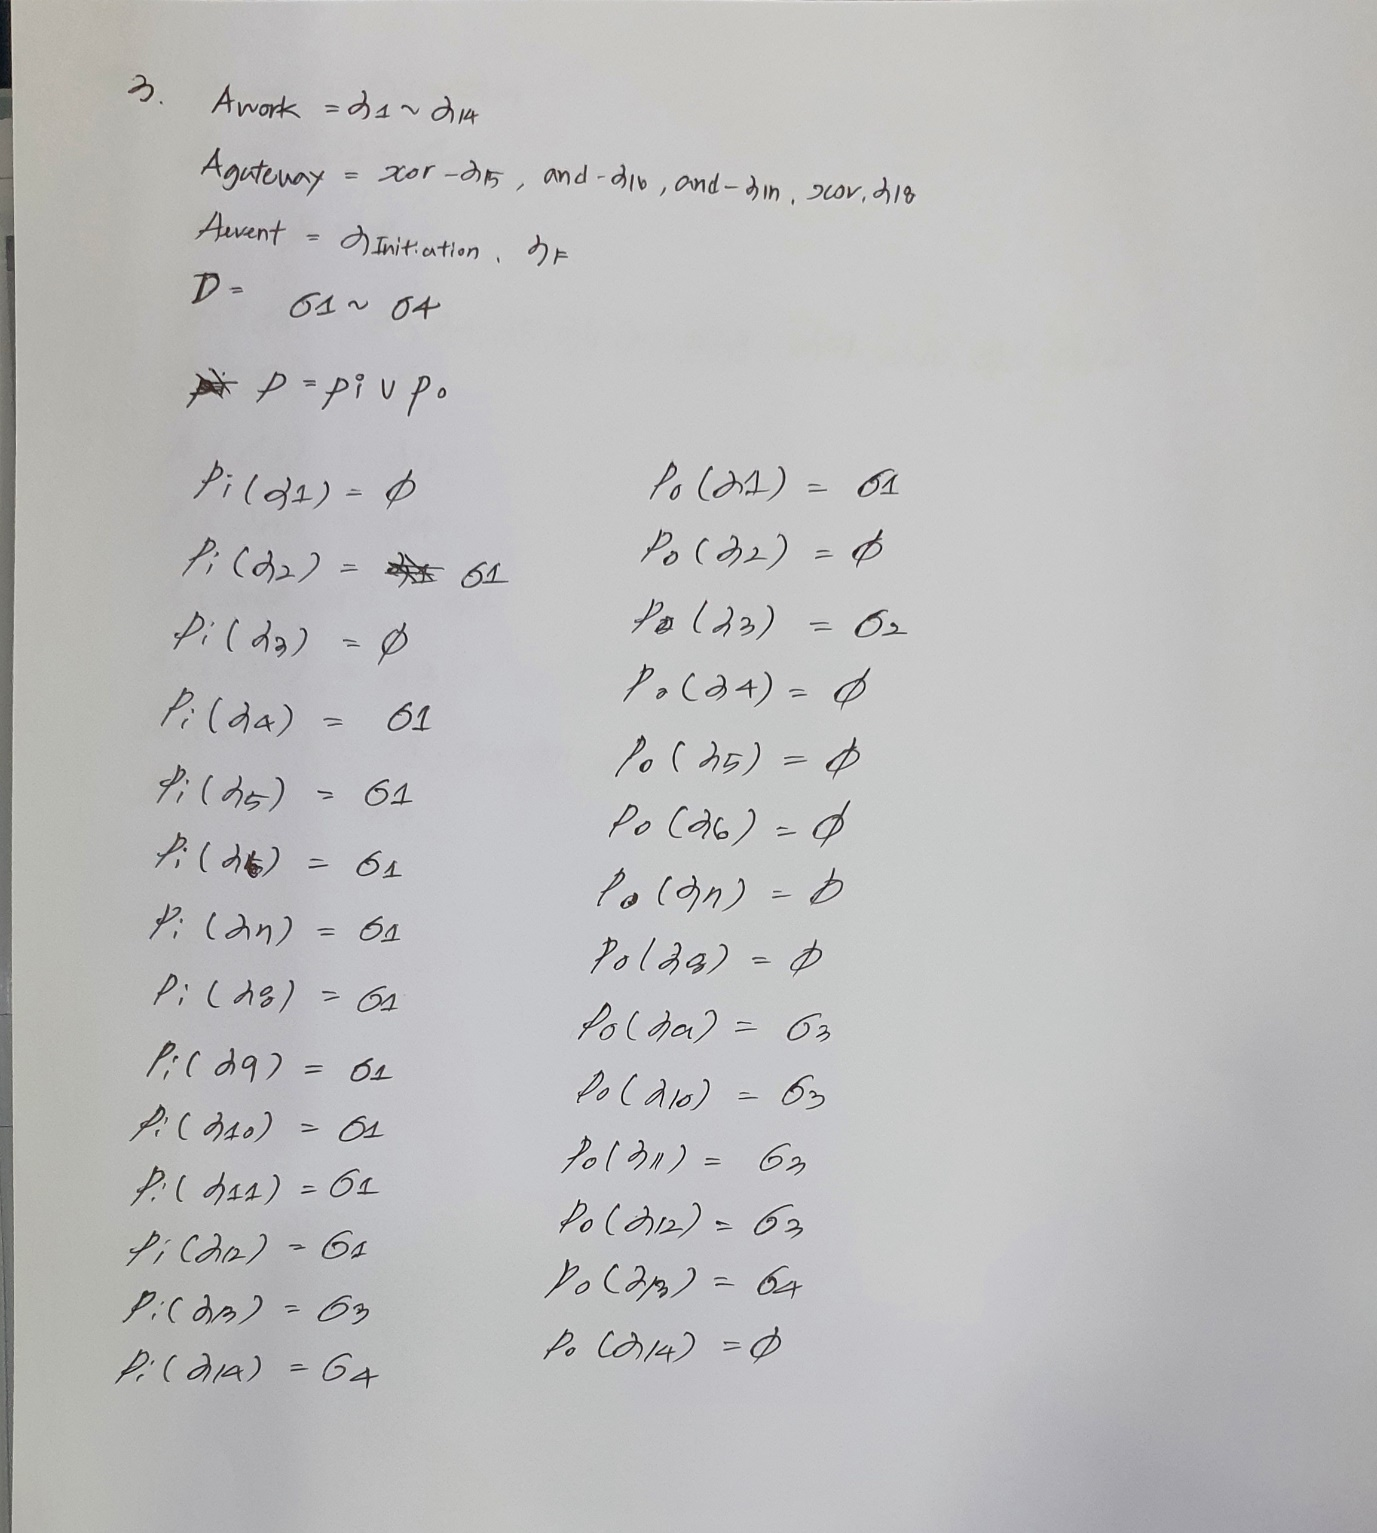 3.
Awork = α1 ~ α14
Agateway = xor-α15, and-α16, and-α17, xor, α18
Aevent = αInitiation, αF
D = σ1 ~ σ4
P = Pi ∪ Po
Pi(α1) = ∅
Pi(α2) = σ1
Pi(α3) = ∅
Pi(α4) = σ1
Pi(α5) = σ1
Pi(α6) = σ1
Pi(α7) = σ1
Pi(α8) = σ1
Pi(α9) = σ1
Pi(α10) = σ1
Pi(α11) = σ1
Pi(α12) = σ1
Pi(α13) = σ3
Pi(α14) = σ4
Po(α1) = σ1
Po(α2) = ∅
Po(α3) = σ2
Po(α4) = ∅
Po(α5) = ∅
Po(α6) = ∅
Po(α7) = ∅
Po(α8) = ∅
Po(α9) = σ3
Po(α10) = σ3
Po(α11) = σ3
Po(α12) = σ3
Po(α13) = σ4
Po(α14) = ∅